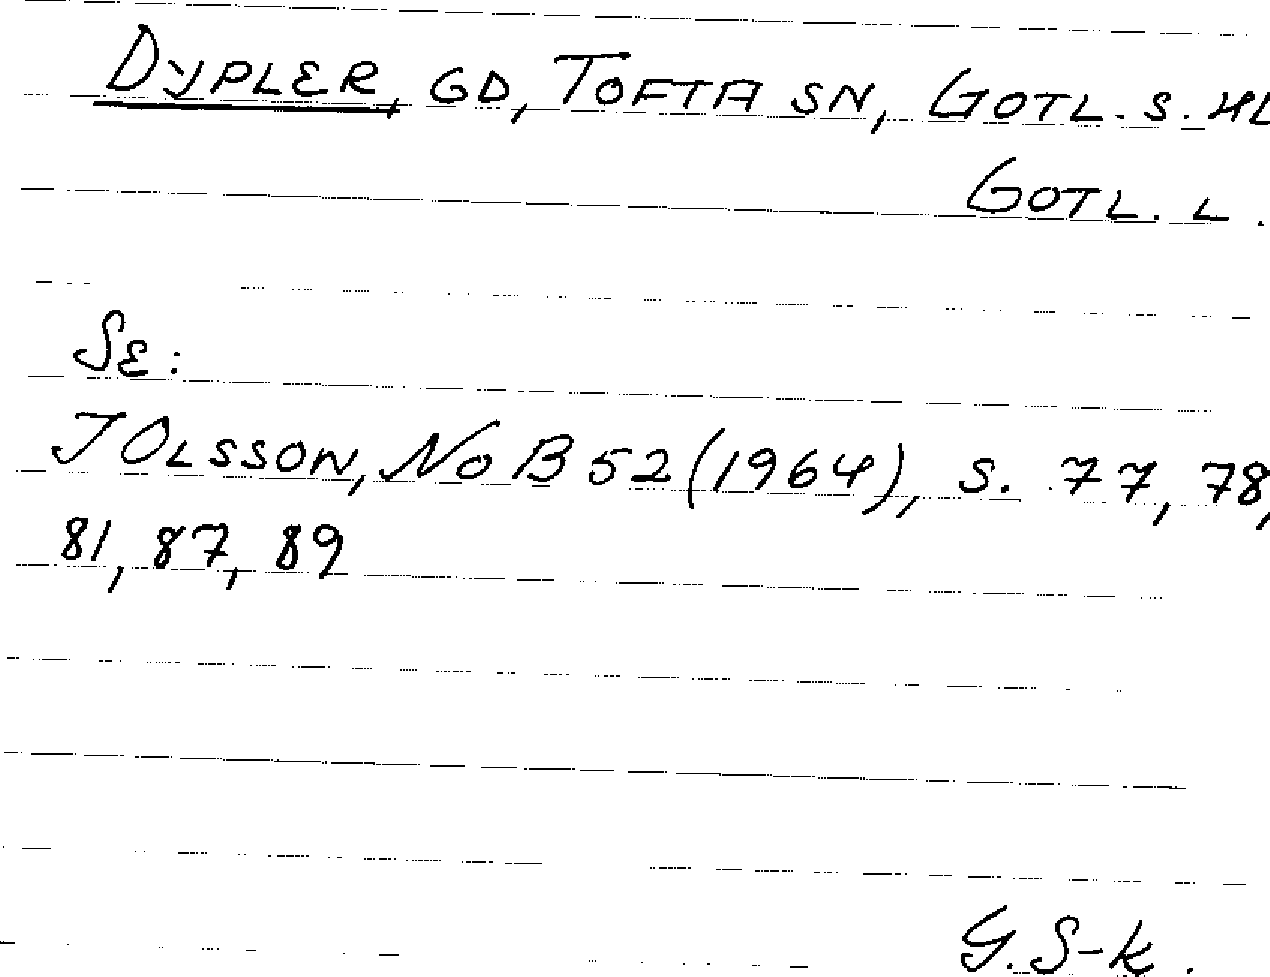 DYPLER, GD, TOFTA SN, GOTL. S. HD
GOTL. L.
SE:
J OLSSON, NoB 52 (1964), S. 77, 78,
81, 87, 89
G. S-K.